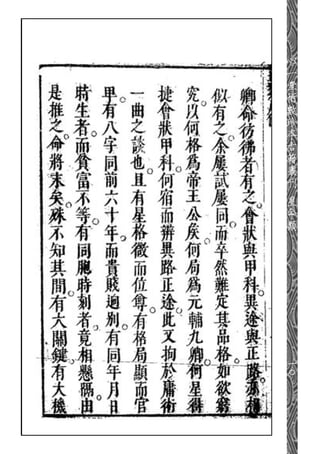 卿命彷彿者有之會狀與甲科異途與正路亦相
似有之余屢試屢同而卒然難定其品格如欲窮
究以何格爲帝王公矦何局爲元輔九卿何星得
捷會狀甲科何宿而辨異路正途此又拘於庸術
一曲之談也且有星格微而位尊有格局顯而官
卑有八字同前六十年而貴賤迥別有同年月日
時生者而貧富不等有同胞時刻者竟相懸隔由
是推之命將末矣殊不知其間有大關鍵有大機